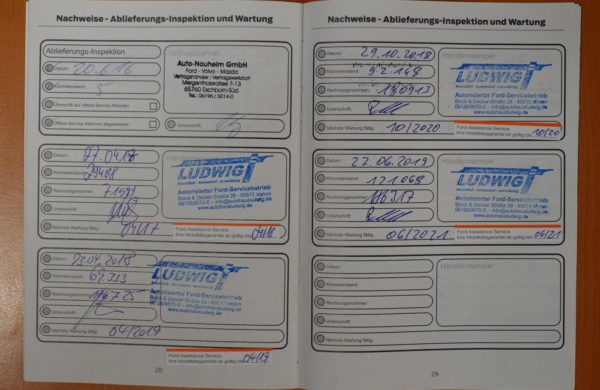 Nachweise - Ablieferungs-Inspektion und Wartung
Ablieferungs-Inspektion
Datum 20.6.16
Kilometerstand 5
Umwandt auf offene Service-Aktionen
Offene Service-Aktionen abgearbeitet
Vertragspartner
Auto-Nauheim GmbH
Ford - Volvo - Mazda
Vertragshändler / Vertragswerkstatt
Mergenthalerallee 7-13
65760 Eschborn-Süd
Tel.: 06196 / 5016-0
Unterschrift
Datum 27.04.17
Kilometerstand 29408
Rechnungsnummer
Unterschrift
Nächste Wartung fällig 04/17
Händlerstempel
LUDWIG
Autorisierter Ford-Servicebetrieb
www.autohausludwig.de
Ford Assistance Service
Ihre Mobilitätsgarantie ist gültig bis 04/18
Datum 23.04.2018
Kilometerstand 69.333
Rechnungsnummer 116725
Unterschrift
Nächste Wartung fällig 04/2019
LUDWIG
Autorisierter Ford-Servicebetrieb
www.autohausludwig.de
Ford Assistance Service
Ihre Mobilitätsgarantie ist gültig bis 04/19
28
Nachweise - Ablieferungs-Inspektion und Wartung
Datum 29.10.2018
Kilometerstand 92.148
Rechnungsnummer
Unterschrift
Nächste Wartung fällig 10/2020
Händlerstempel
LUDWIG
Autorisierter Ford-Servicebetrieb
www.autohausludwig.de
Ford Assistance Service
Ihre Mobilitätsgarantie ist gültig bis 10/20
Datum 22.06.2019
Kilometerstand 121.068
Rechnungsnummer
Unterschrift
Nächste Wartung fällig 06/2021
Händlerstempel
LUDWIG
Autorisierter Ford-Servicebetrieb
www.autohausludwig.de
Ford Assistance Service
Ihre Mobilitätsgarantie ist gültig bis 06/21
Datum
Kilometerstand
Rechnungsnummer
Unterschrift
Nächste Wartung fällig
Händlerstempel
29